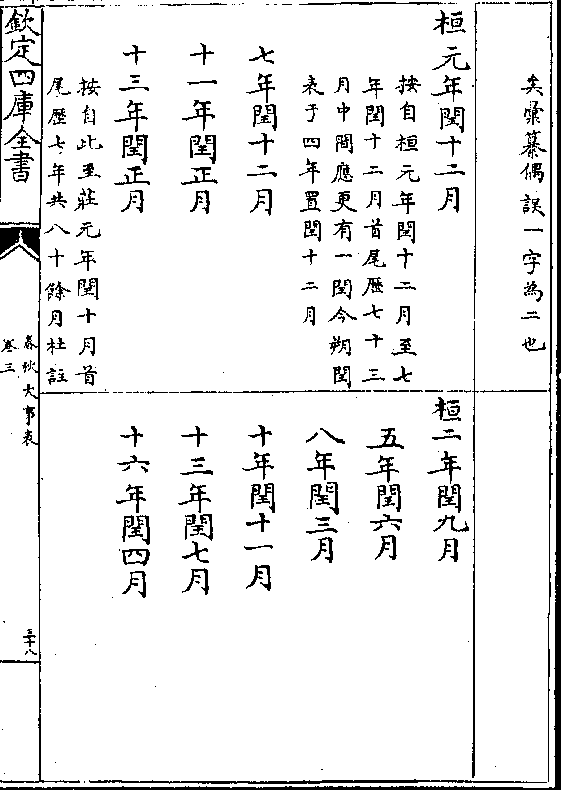 矣彙纂偶誤一字為二也
桓元年閏十二月
按自桓元年閏十二月至七
年閏十二月首尾歴七十三
月中間應更有一閏今朔閏
表于四年置閏十二月
七年閏十二月
十一年閏正月
十三年閏正月
按自此至莊元年閏十月首
尾歴七年共八十餘月杜註
桓二年閏九月
五年閏六月
八年閏三月
十年閏十一月
十三年閏七月
十六年閏四月
欽定四庫全書
春秋大事表
卷三
三十八